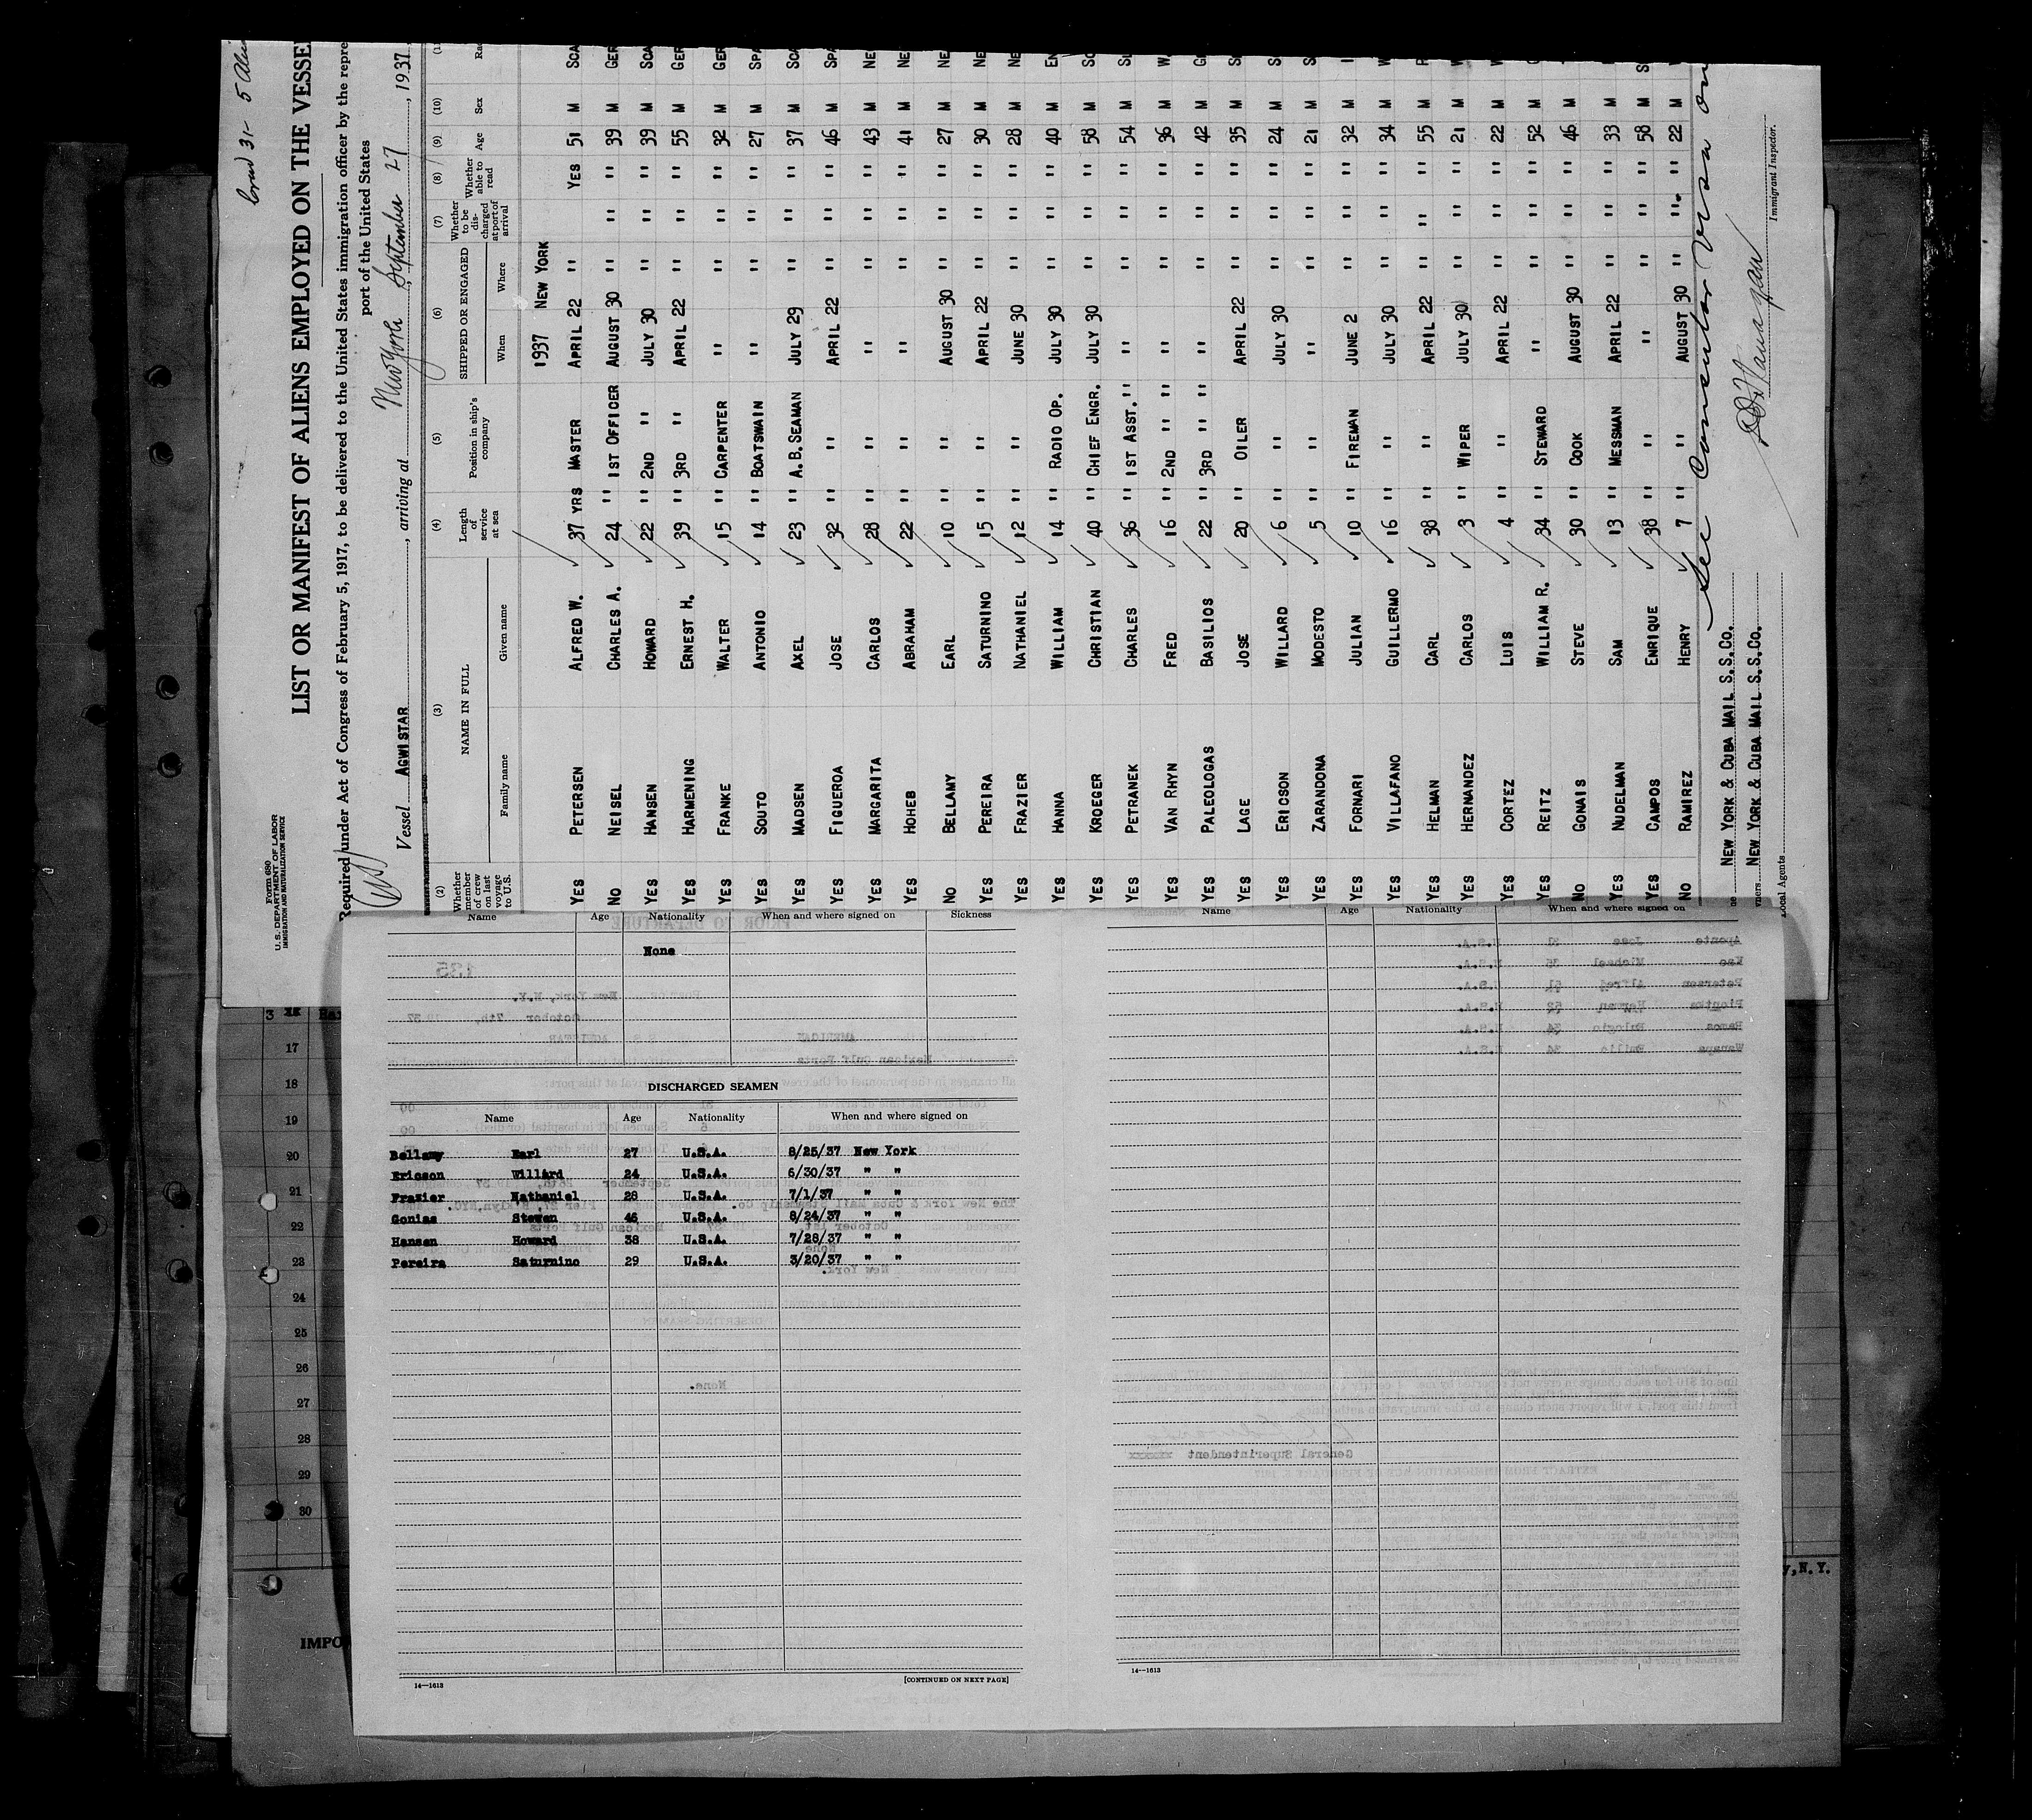 Crew 31- 5 Alie
Form 680
U.S. DEPARTMENT OF LABOR
IMMIGRATION AND NATURALIZATION SERVICE
LIST OR MANIFEST OF ALIENS EMPLOYED ON THE VESSE
Required under Act of Congress of February 5, 1917, to be delivered to the United States immigration officer by the repre
port of the United States
Vessel AGWISTAR, arriving at New York, September 27, 1937
(2) (3) (4) (5) (6) (7) (8) (9) (10)
Whether member of crew on last voyage to U.S. NAME IN FULL Family name Given name Length of service at sea Position in ship's company SHIPPED OR ENGAGED When Where Whether to be discharged at port of arrival Whether able to read Age Sex
1937 NEW YORK
YES PETERSEN ALFRED W. 37 YRS MASTER APRIL 22 " YES 51 M SCA
NO NEISEL CHARLES A. 24 " 1ST OFFICER AUGUST 30 " " " 39 M GER
YES HANSEN HOWARD 22 " 2ND " JULY 30 " " " 39 M SCA
YES HARMENING ERNEST H. 39 " 3RD " APRIL 22 " " " 55 M GER
YES FRANKE WALTER 15 " CARPENTER " " " " 32 M GER
YES SOUTO ANTONIO 14 " BOATSWAIN " " " " 27 M SPA
YES MADSEN AXEL 23 " A.B.SEAMAN JULY 29 " " " 37 M SCA
YES FIGUEROA JOSE 32 " " APRIL 22 " " " 46 M SPA
YES MARGARITA CARLOS 28 " " " " " " 43 M NE
YES HOHEB ABRAHAM 22 " " " " " " 41 M NE
NO BELLAMY EARL 10 " " AUGUST 30 " " " 27 M NE
YES PEREIRA SATURNINO 15 " " APRIL 22 " " " 30 M NE
YES FRAZIER NATHANIEL 12 " " JUNE 30 " " " 28 M NE
YES HANNA WILLIAM 14 " RADIO OP. JULY 30 " " " 40 M EN
YES KROEGER CHRISTIAN 40 " CHIEF ENGR. JULY 30 " " " 58 M SC
YES PETRANEK CHARLES 36 " 1ST ASST." " " " " 54 M
YES VAN RHYN FRED 16 " 2ND " " " " " " 36 M
YES PALEOLOGAS BASILIOS 22 " 3RD " " " " " " 42 M
YES LAGE JOSE 20 " OILER APRIL 22 " " " 35 M
YES ERICSON WILLARD 6 " " JULY 30 " " " 24 M
YES ZARANDONA MODESTO 5 " " " " " " 21 M
YES FORNARI JULIAN 10 " FIREMAN JUNE 2 " " " 32 M
YES VILLAFANO GUILLERMO 16 " " JULY 30 " " " 34 M
YES HELMAN CARL 38 " " APRIL 22 " " " 55 M
YES HERNANDEZ CARLOS 3 " WIPER JULY 30 " " " 21 M
YES CORTEZ LUIS 4 " " APRIL 22 " " " 22 M
YES REITZ WILLIAM R. 34 " STEWARD " " " " 52 M
NO GONAIS STEVE 30 " COOK AUGUST 30 " " " 46 M
YES NUDELMAN SAM 13 " MESSMAN APRIL 22 " " " 33 M
YES CAMPOS ENRIQUE 38 " " " " " " 58 M S
NO RAMIREZ HENRY 7 " " AUGUST 30 " " " 22 M
See Consular Visa on
NEW YORK & CUBA MAIL S.S.CO.
NEW YORK & CUBA MAIL S.S.CO.
Local Agents
Immigrant Inspector.
Name Age Nationality When and where signed on Sickness
None
DISCHARGED SEAMEN
Name Age Nationality When and where signed on
Bellamy Earl 27 U.S.A. 8/25/37 New York
Ericson Willard 24 U.S.A. 6/30/37 " "
Frazier Nathaniel 28 U.S.A. 7/1/37 " "
Gonias Steven 46 U.S.A. 8/24/37 " "
Hansen Howard 38 U.S.A. 7/28/37 " "
Pereira Saturnino 29 U.S.A. 3/20/37 " "
14—1613 [CONTINUED ON NEXT PAGE]
Name Age Nationality When and where signed on
14—1613
3
17
18
19
20
21
22
23
24
25
26
27
28
29
30
IMPO
, N. Y.